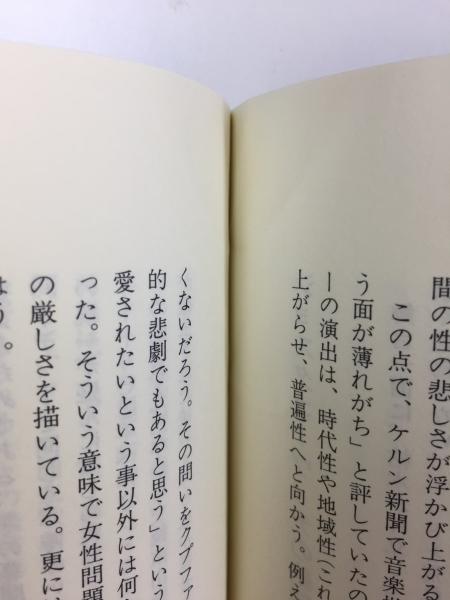 間の性の悲しさが浮かび上がる
この点で、ケルン新聞で音楽
う面が薄れがち」と評していたの
ーの演出は、時代性や地域性（これ
上がらせ、普遍性へと向かう。例え
くないだろう。その問いをクプファ
的な悲劇でもあると思う」という
愛されたいという事以外には何
った。そういう意味で女性問題
の厳しさを描いている。更に
よう。